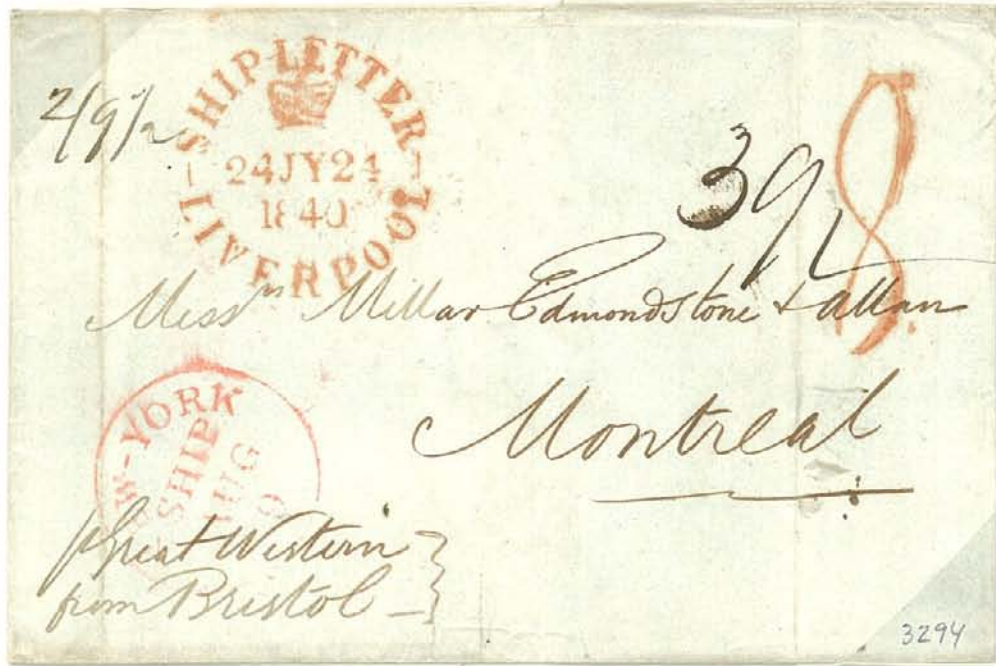 SHIP LETTER
24JY24
1840
LIVERPOOL
2/9½
39½
8.
Messrs Millar Edmondstone & Allan
Montreal
W-YORK
SHIP
AUG
9
p Great Western
from Bristol
3294